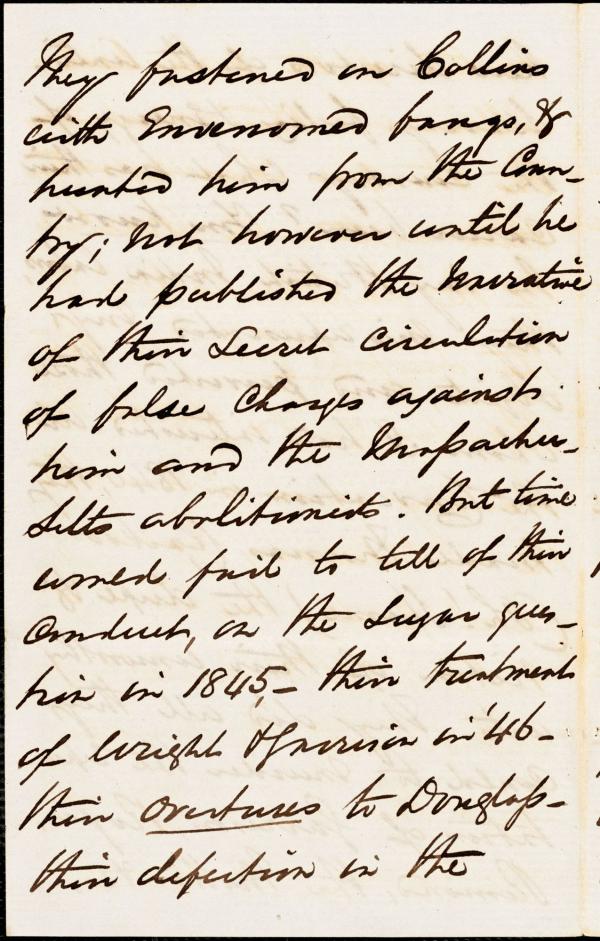 They fastened on Collins
with Envenomed fangs, &
hunted him from the Coun-
try; not however until he
had published the Narrative
of their Secret Circulation
of false Charges against
him and the Massachu-
setts abolitionists. But time
would fail to tell of their
Conduct, on the Sugar ques-
tion in 1845,- their treatment
of Wright & Garrison in '46-
their overtures to Douglass-
their defection in the